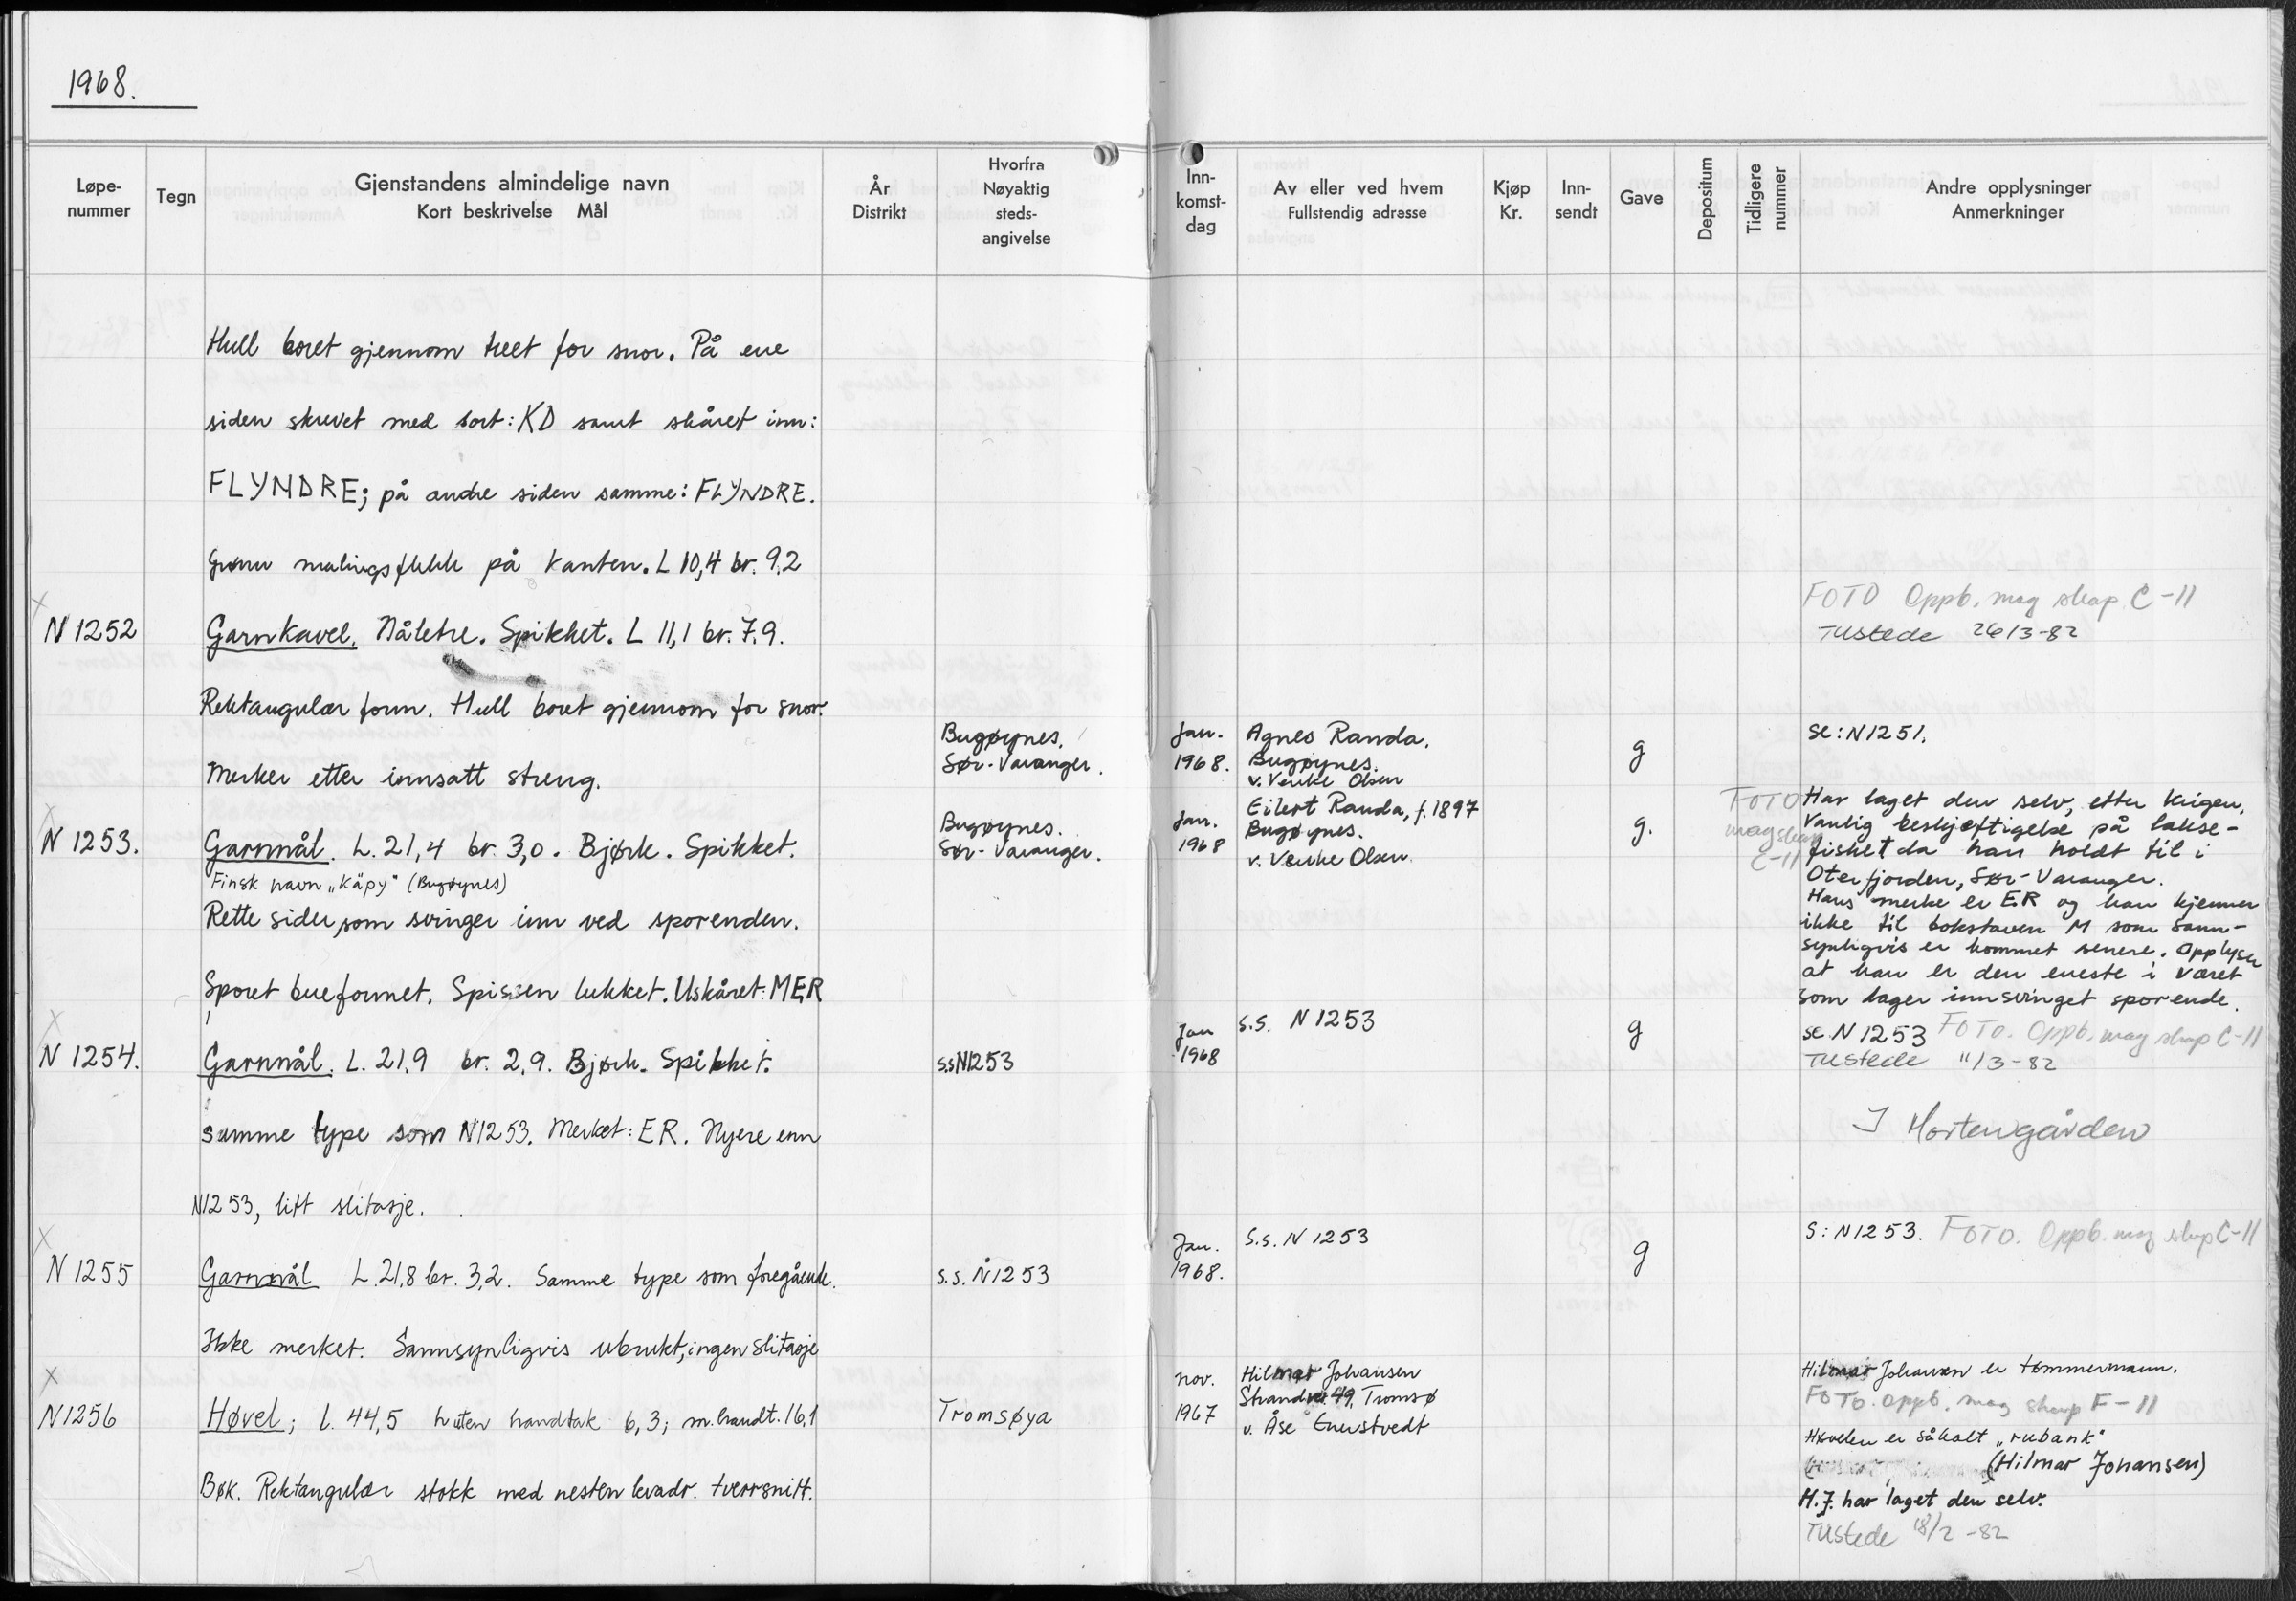 1968.
Løpe-
nummer
Tegn
Gjenstandens almindelige navn
Kort beskrivelse Mål
År
Distrikt
Hvorfra
Nøyaktig
steds-
angivelse
Inn-
komst-
dag
Av eller ved hvem
Fullstendig adresse
Kjøp
Kr.
Inn-
sendt
Gave
Depositum
Tidligere
nummer
Andre opplysninger
Anmerkninger
Hull boret gjennom treet for snor. På ene
siden skrevet med sort: KD samt skåret inn:
FLYNDRE; på andre siden samme: FLYNDRE.
Grønn malingsflekk på kanten. L 10,4 br. 9,2
X
N 1252
Garnkavel. Nåletre. Spikket. L 11,1 br. 7,9.
Rektangulær form. Hull boret gjennom for snor.
Merker etter innsatt streng.
Bugøynes.
Sør-Varanger.
Jan.
1968.
Agnes Randa.
Bugøynes.
v. Venke Olsen
g
FOTO Oppb. mag skap C-11
Tilstede 26/3-82
se: N1251.
X
N 1253.
Garnnål. L. 21,4 br. 3,0. Bjørk. Spikket.
Finsk navn „Käpy" (Bugøynes)
Rette sider, som svinger inn ved sporenden.
Sporet bueformet. Spissen lukket. Uskåret: MER
Bugøynes.
Sør-Varanger.
Jan.
1968
Eilert Randa, f. 1897
Bugøynes.
v. Venke Olsen.
g.
FOTO
mag skap
C-11
Har laget den selv, etter krigen.
Vanlig beskjæftigelse på lakse-
fisket da han holdt til i
Oterfjorden, Sør-Varanger.
Hans merke er E.R og han kjenner
ikke til bokstaven M som sann-
synligvis er kommet senere. Opplyser
at han er den eneste i været
som lager innsvinget sporende.
X
N 1254.
Garnnål. L. 21,9 br. 2,9. Bjørk. Spikket.
Samme type som N1253. Merket: ER. Nyere enn
N1253, litt slitasje.
s.s N1253
Jan
1968
S.S. N 1253
g
se N 1253 FOTO. Oppb. mag skap C-11
Tilstede 11/3-82
I Mortengården
X
N 1255
Garnnål L. 21,8 br. 3,2. Samme type som foregående.
Ikke merket. Sannsynligvis ubrukt, ingen slitasje
s.s. N 1253
Jan.
1968.
S.s. N 1253
g
S: N 1253. FOTO. Oppb. mag skap C-11
X
N1256
Høvel; l. 44,5 h uten handtak 6,3; m. handt. 16,1
Bøk. Rektangulær stokk med nesten kvadr. tverrsnitt.
Tromsøya
nov.
1967
Hilmar Johansen
Strandvn. 49, Tromsø
v. Åse Enerstvedt
Hilmar Johansen er tømmermann.
FOTO. oppb. mag skap F-11
Høvelen er såkalt „rubank"
(Hilmar Johansen)
H.J. har laget den selv.
Tilstede 18/2-82